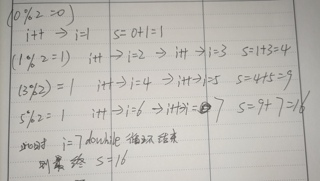 (0%2=0)
i++ → i=1 s=0+1=1
(1%2=1) i++ → i=2 → i++ → i=3 s=1+3=4
(3%2)=1 i++ → i=4 → i++ → i=5 s=4+5=9
5%2=1 i++ → i=6 → i++ i= 7 s=9+7=16
此时 i=7 dowhile 循环结束
则最终 s=16